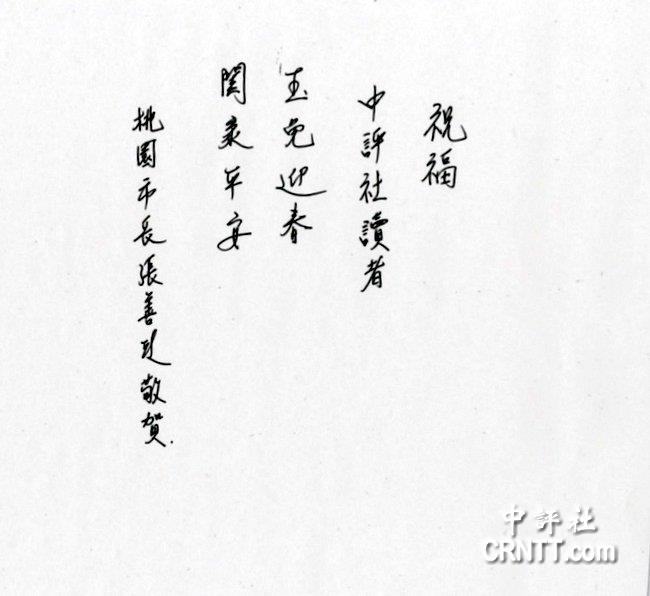 祝福
中評社讀者
玉兔迎春
閤家平安
桃園市長張善政敬賀.
中評社
CRNTT.com